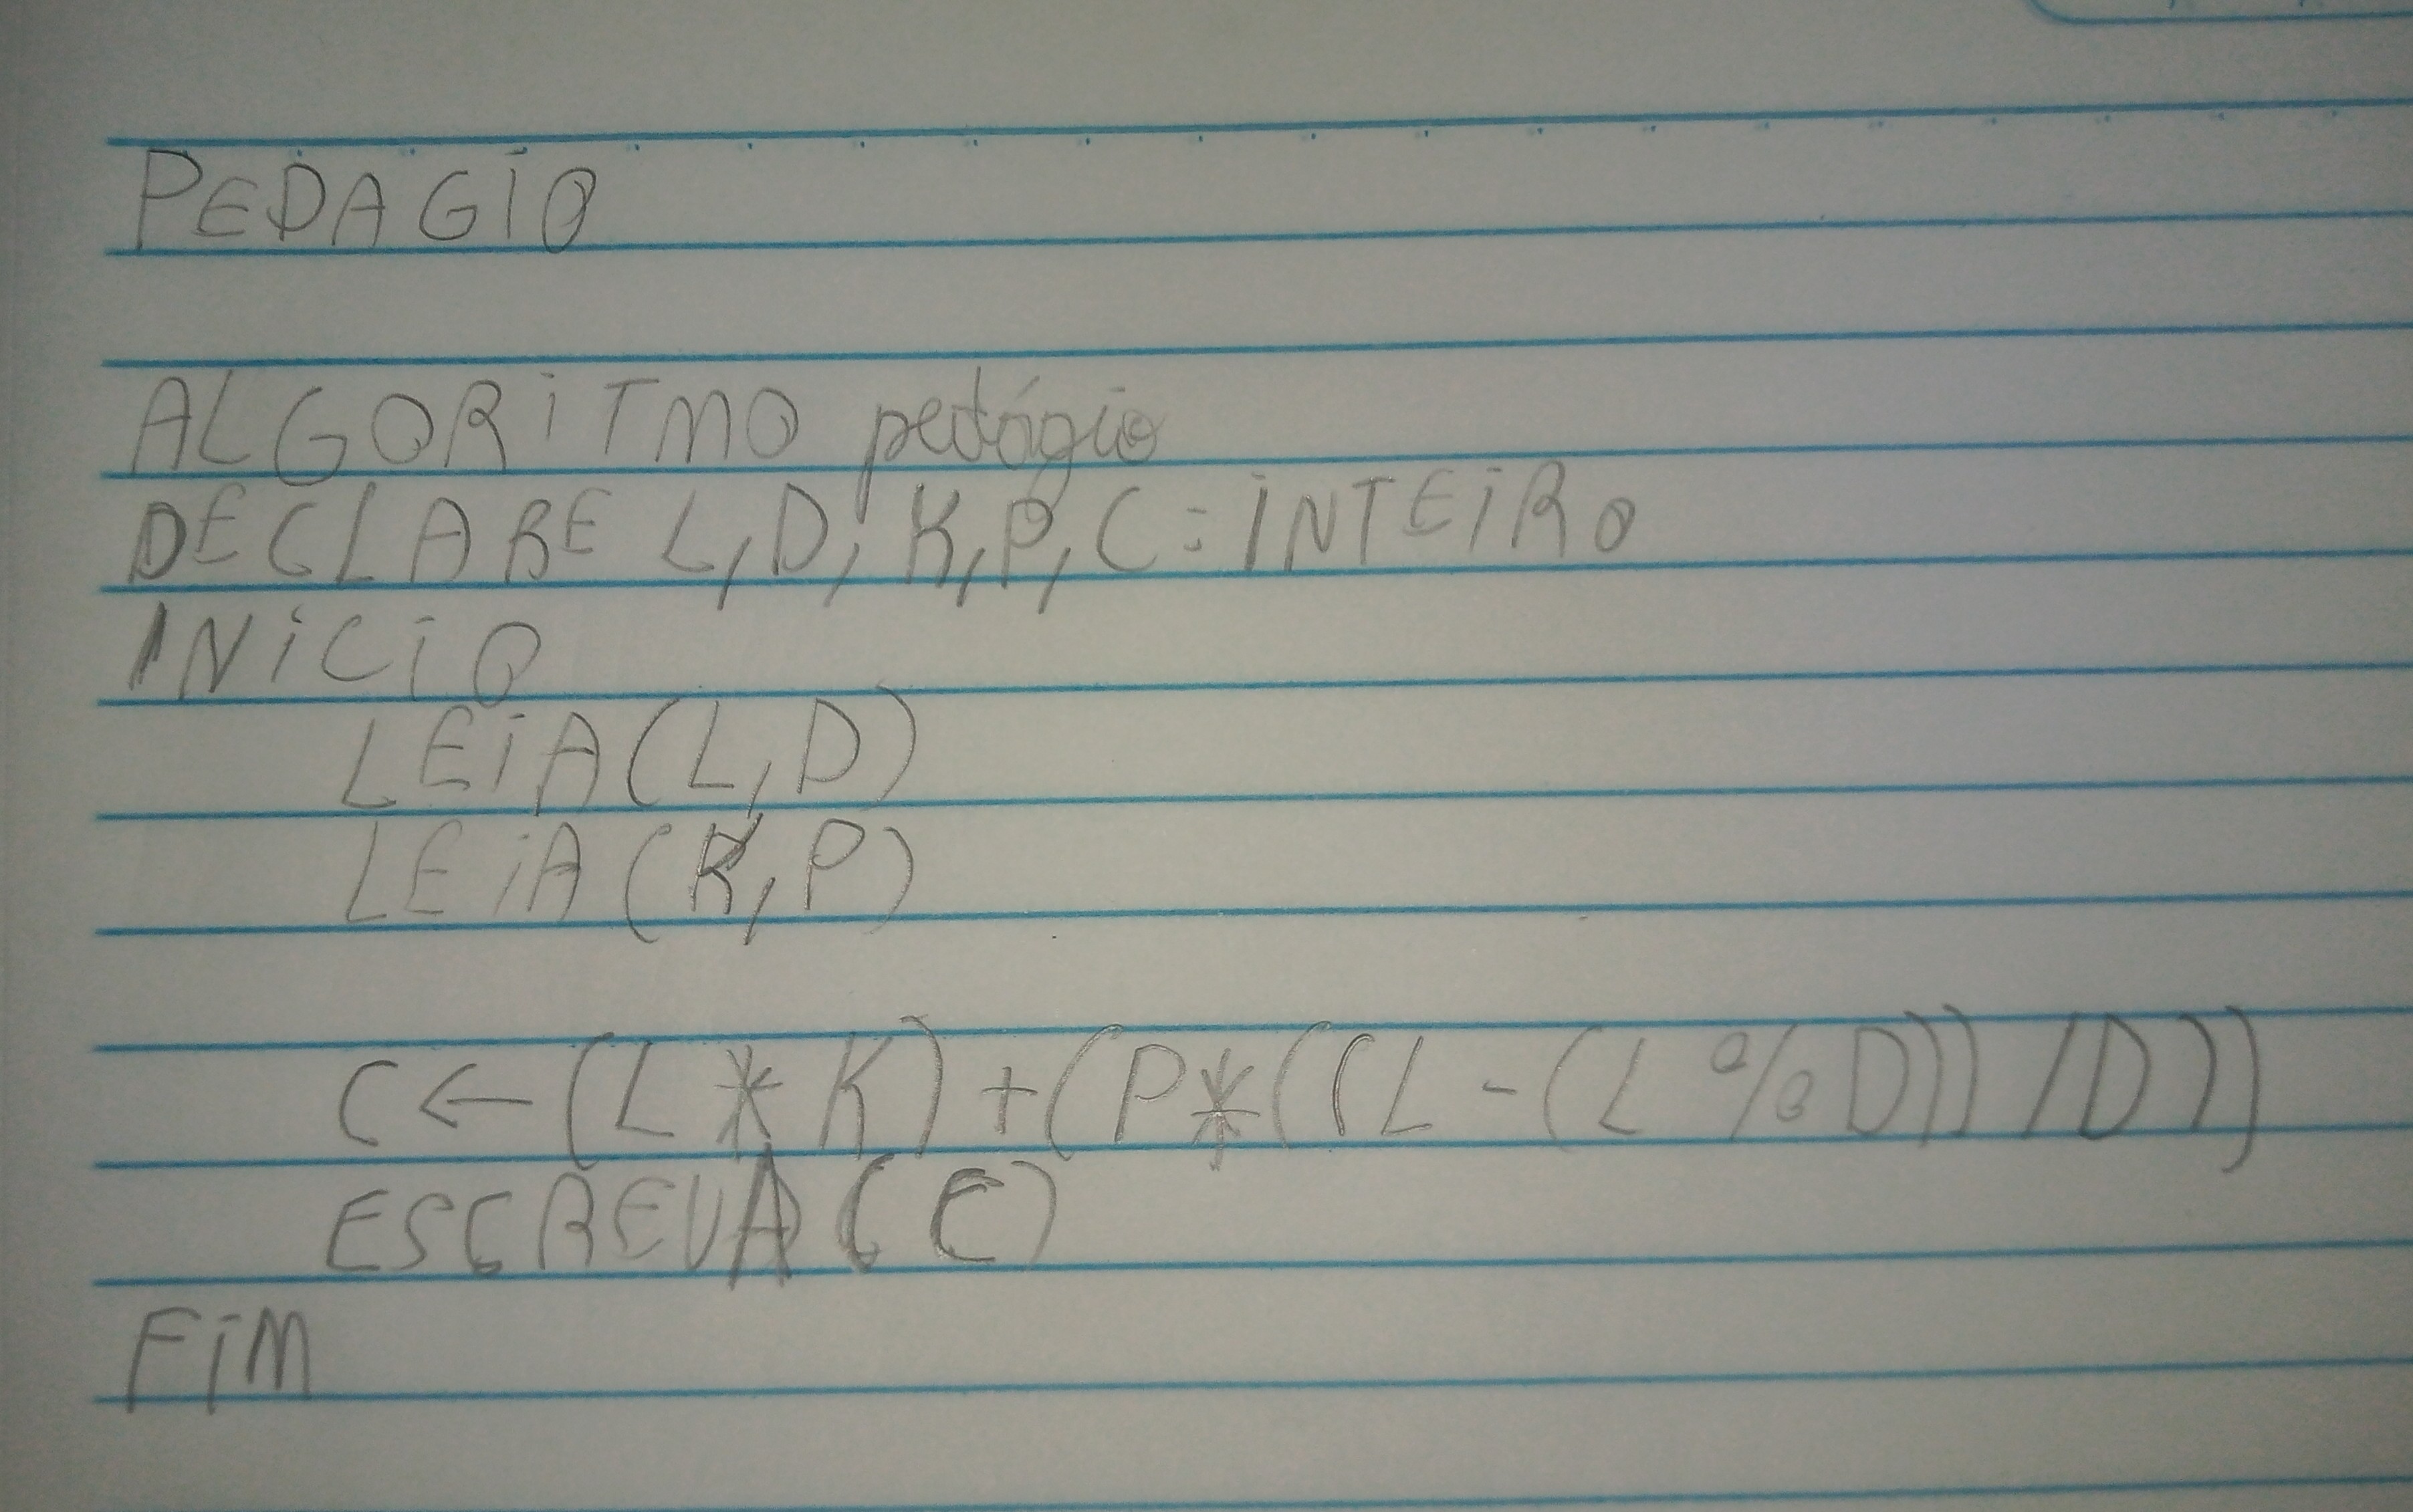 PEDAGIO
ALGORITMO pedágio
DECLARE L,D, K,P,C : INTEIRO
INICIO
LEIA(L,D)
LEIA(K,P)
C ← (L * K) + (P * ((L - (L % D)) / D))
ESCREVA(C)
FIM